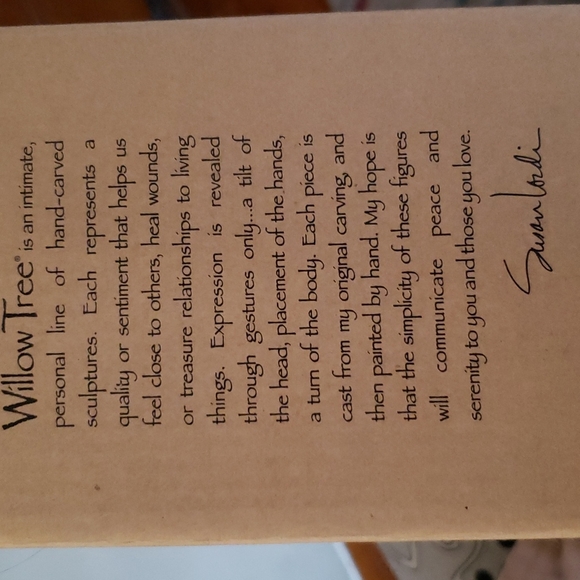 Willow Tree® is an intimate,
personal line of hand-carved
sculptures. Each represents a
quality or sentiment that helps us
feel close to others, heal wounds,
or treasure relationships to living
things. Expression is revealed
through gestures only...a tilt of
the head, placement of the hands,
a turn of the body. Each piece is
cast from my original carving, and
then painted by hand. My hope is
that the simplicity of these figures
will communicate peace and
serenity to you and those you love.
Susan Lordi